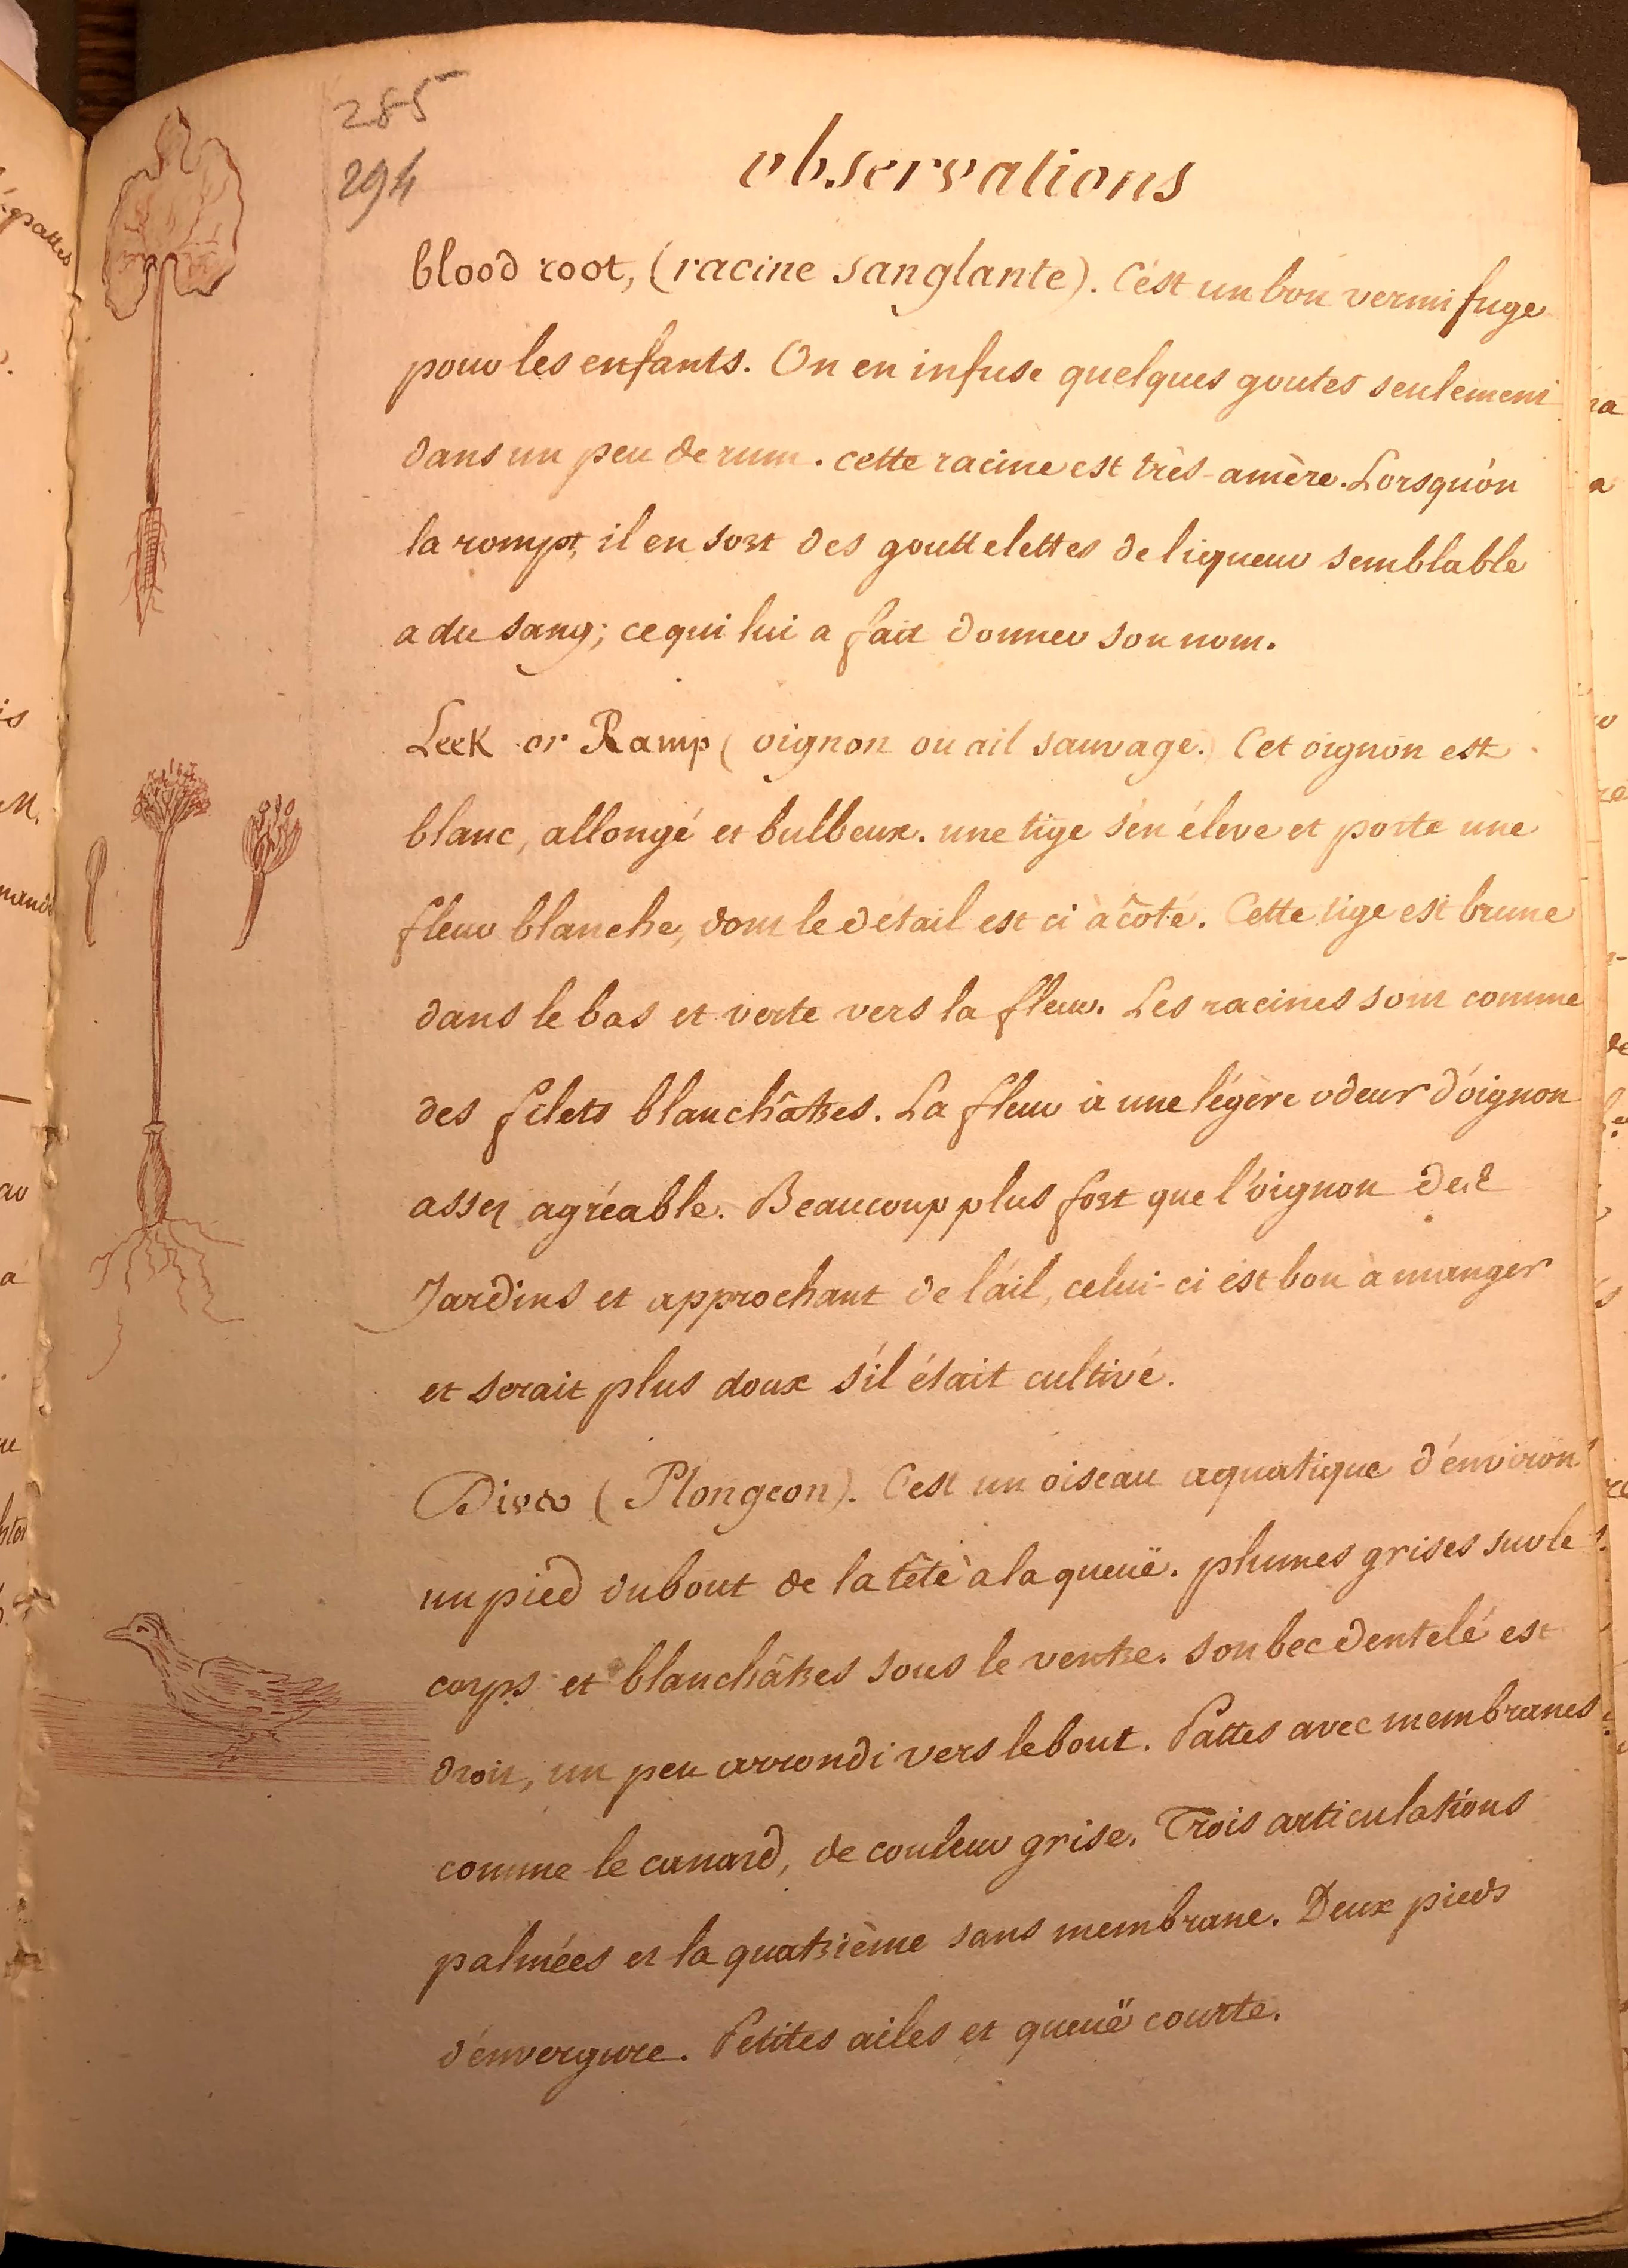 285
294
observations
blood root, (racine sanglante). C'est un bon vermifuge
pour les enfants. On en infuse quelques goutes seulement
dans un peu de rum. cette racine est très-amère. Lorsqu'on
la rompt, il en sort des gouttelettes de liqueur semblable
a du sang; ce qui lui a fait donner son nom.
Leek or Ramp (oignon ou ail sauvage.) Cet oignon est
blanc, allongé et bulbeux. une tige s'en éleve et porte une
fleur blanche, dont le détail est ci à côté. Cette tige est brune
dans le bas et verte vers la fleur. Les racines sont comme
des filets blanchâtres. La fleur à une légère odeur d'oignon
assez agréable. Beaucoup plus fort que l'oignon des
Jardins et approchant de l'ail, celui-ci est bon à manger
et serait plus doux s'il était cultivé.
Diver (Plongeon). C'est un oiseau aquatique d'environ
un pied du bout de la tête à la queuë. plumes grises sur le
corps et blanchâtres sous le ventre. son bec dentelé est
droit, un peu arrondi vers le bout. Pattes avec membranes
comme le canard, de couleur grise. Trois articulations
palmées et la quatrième sans membrane. Deux pieds
d'envergure. Petites ailes et queuë courte.